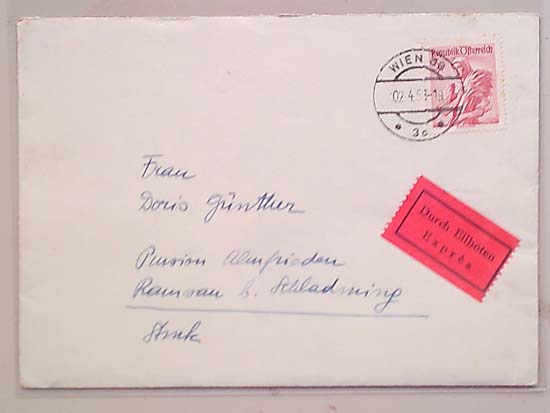 Republik Österreich
WIEN
02.4.53-1
3c
Frau
Doris Günther
Pension Almfrieden
Ramsau b. Schladming
Stmk
Durch Eilboten
Exprès